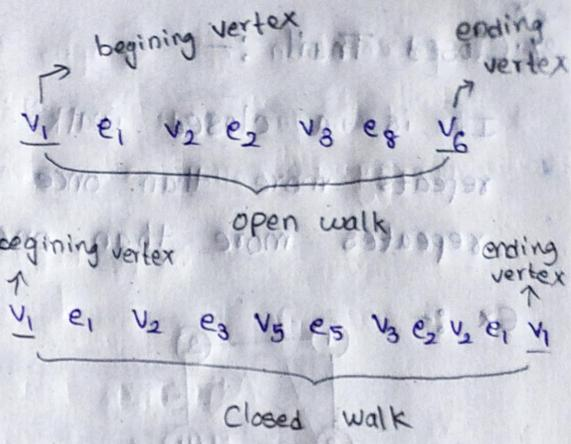 begining vertex
ending
vertex
v1 e1 v2 e2 v3 e8 v6
open walk
begining vertex
ending
vertex
v1 e1 v2 e3 v5 e5 v3 e2 v2 e1 v1
Closed walk